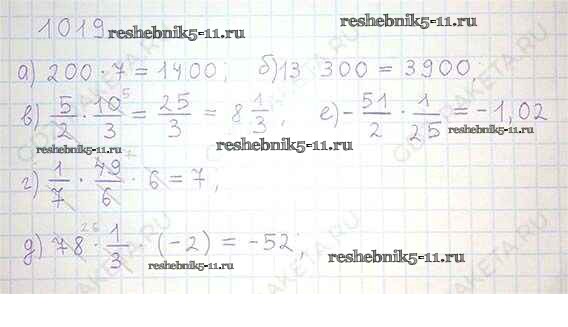 1019 reshebnik5-11.ru reshebnik5-11.ru
а) 200 · 7 = 1400; б) 13 300 = 3900;
в) 5/2 · 10/3 5 = 25/3 = 8 1/3; е) -51/2 · 1/25 = -1,02
reshebnik5-11.ru reshebnik5-11.ru reshebnik5-11.ru
г) 1/7 · 49/6 7 · 6 = 7;
д) 78 26 · 1/3 · (-2) = -52;
reshebnik5-11.ru reshebnik5-11.ru